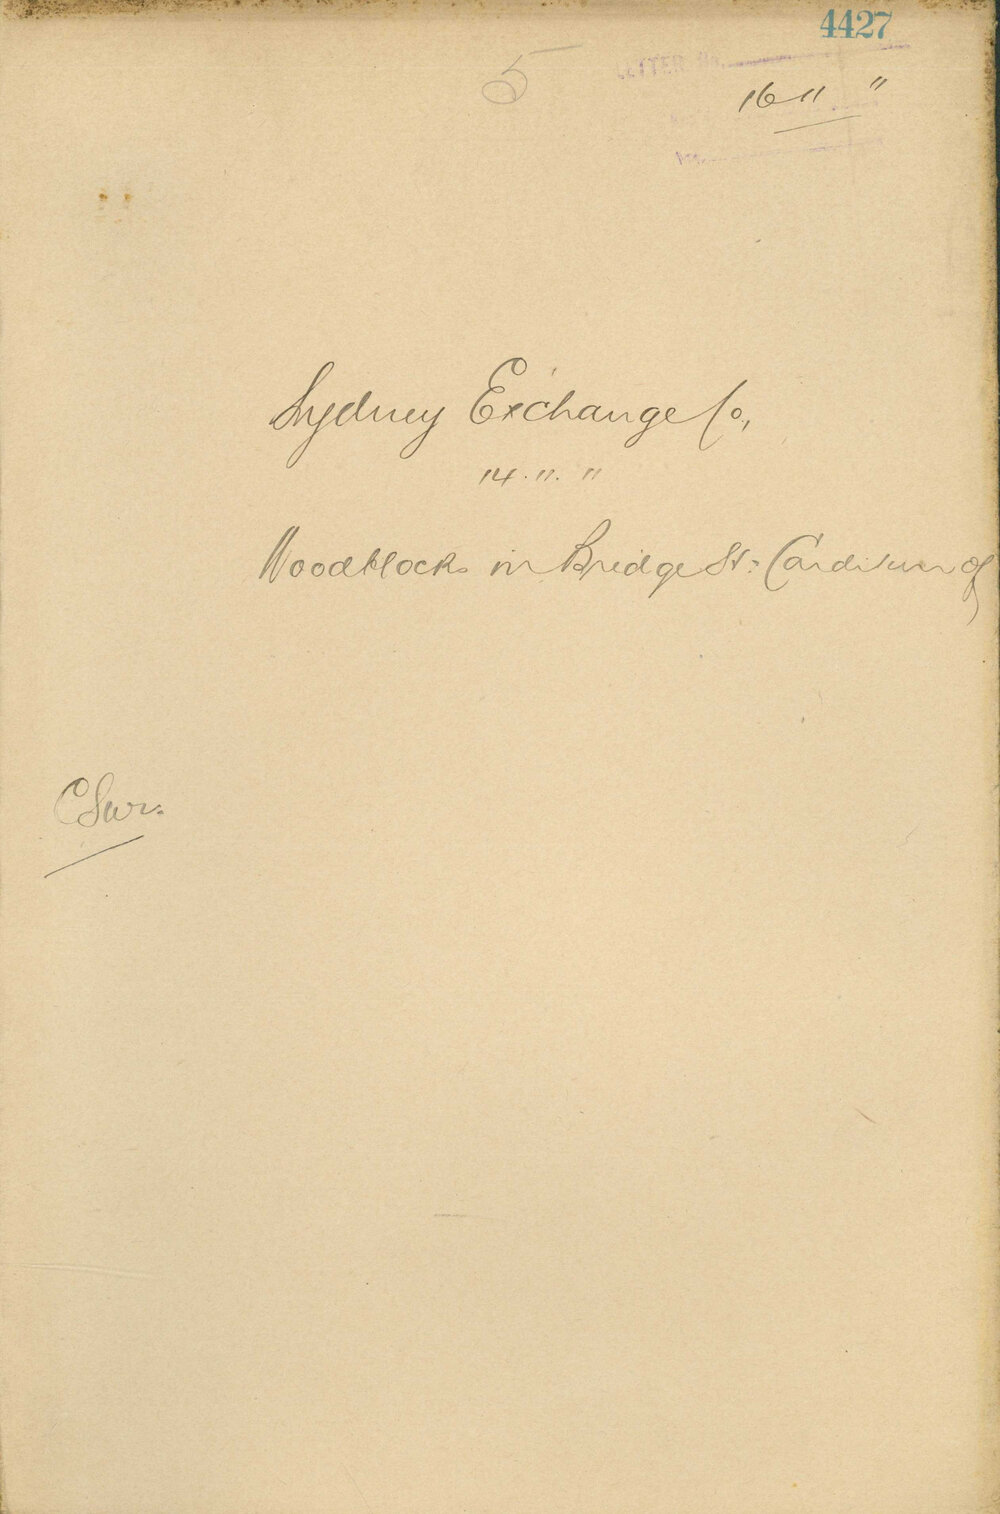 4427
5
LETTER No.
16 11 "
Sydney Exchange Co,
14. 11. 11
Woodblocks in Bridge St: Condition of
C Sur.